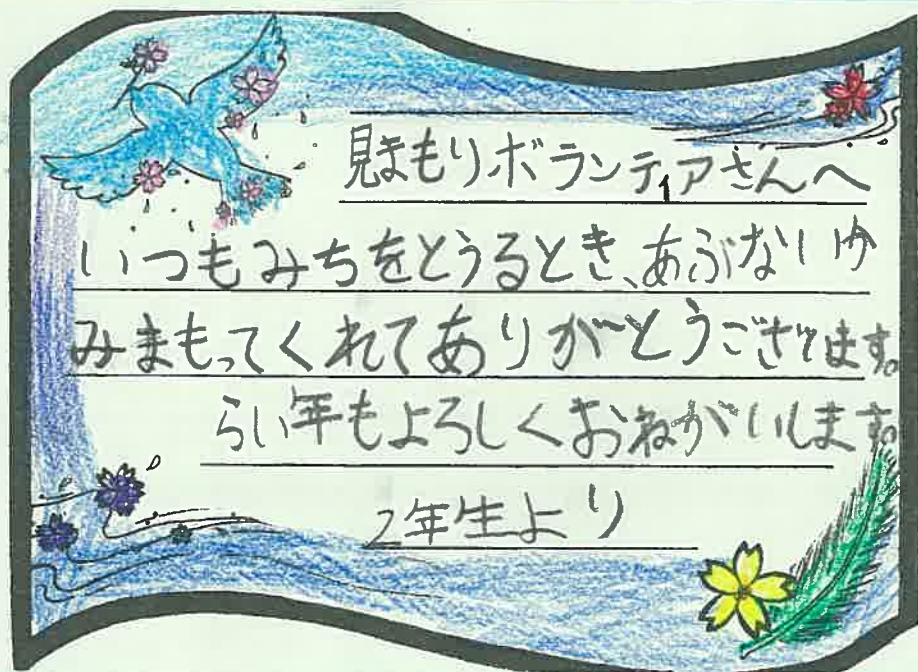 見まもりボランティアさんへ
いつもみちをとうるとき、あぶないゆ
みまもってくれてありがとうございます。
らい年もよろしくおねがいします。
2年生より